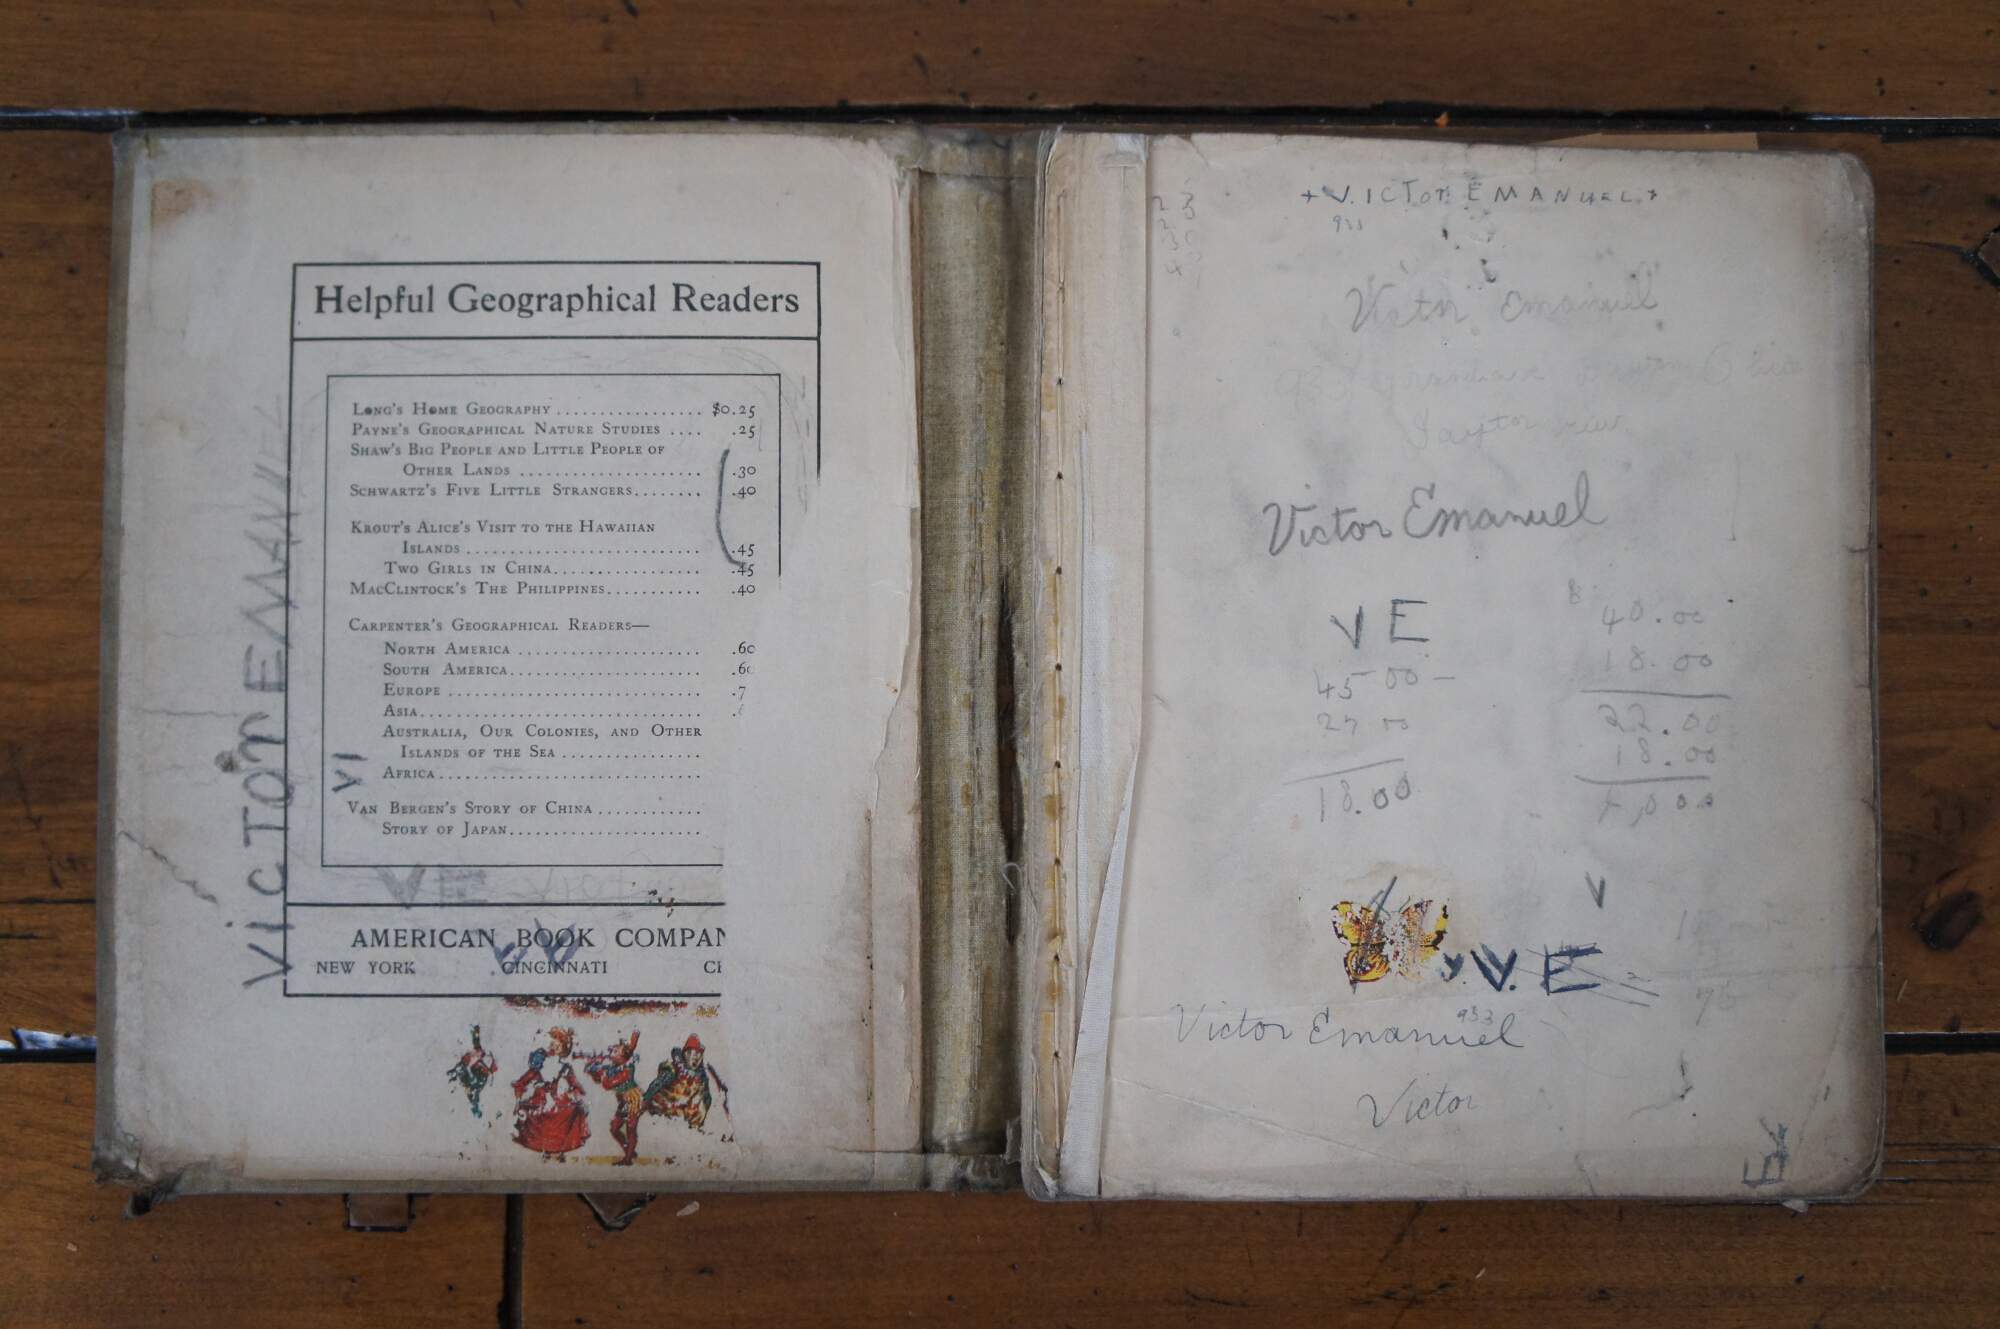 Helpful Geographical Readers
LONG'S HOME GEOGRAPHY ................. $0.25
PAYNE'S GEOGRAPHICAL NATURE STUDIES .... .25
SHAW'S BIG PEOPLE AND LITTLE PEOPLE OF
OTHER LANDS ..................... .30
SCHWARTZ'S FIVE LITTLE STRANGERS........ .40
KROUT'S ALICE'S VISIT TO THE HAWAIIAN
ISLANDS ........................... .45
TWO GIRLS IN CHINA................. .45
MACCLINTOCK'S THE PHILIPPINES........... .40
CARPENTER'S GEOGRAPHICAL READERS—
NORTH AMERICA ..................... .60
SOUTH AMERICA...................... .60
EUROPE ............................. .7
ASIA................................ .
AUSTRALIA, OUR COLONIES, AND OTHER
ISLANDS OF THE SEA ................
AFRICA..............................
VAN BERGEN'S STORY OF CHINA ............
STORY OF JAPAN......................
AMERICAN BOOK COMPAN
NEW YORK CINCINNATI CH
ViCTOT EMANUEL
VI
VE
+ V.ICTOT EMANUEL +
933
Victor Emanuel
Victor Emanuel
V E
45 00 -
27 00
18.00
8
40.00
18.00
22.00
18.00
V
V. V. E
Victor Emanuel
933
Victor